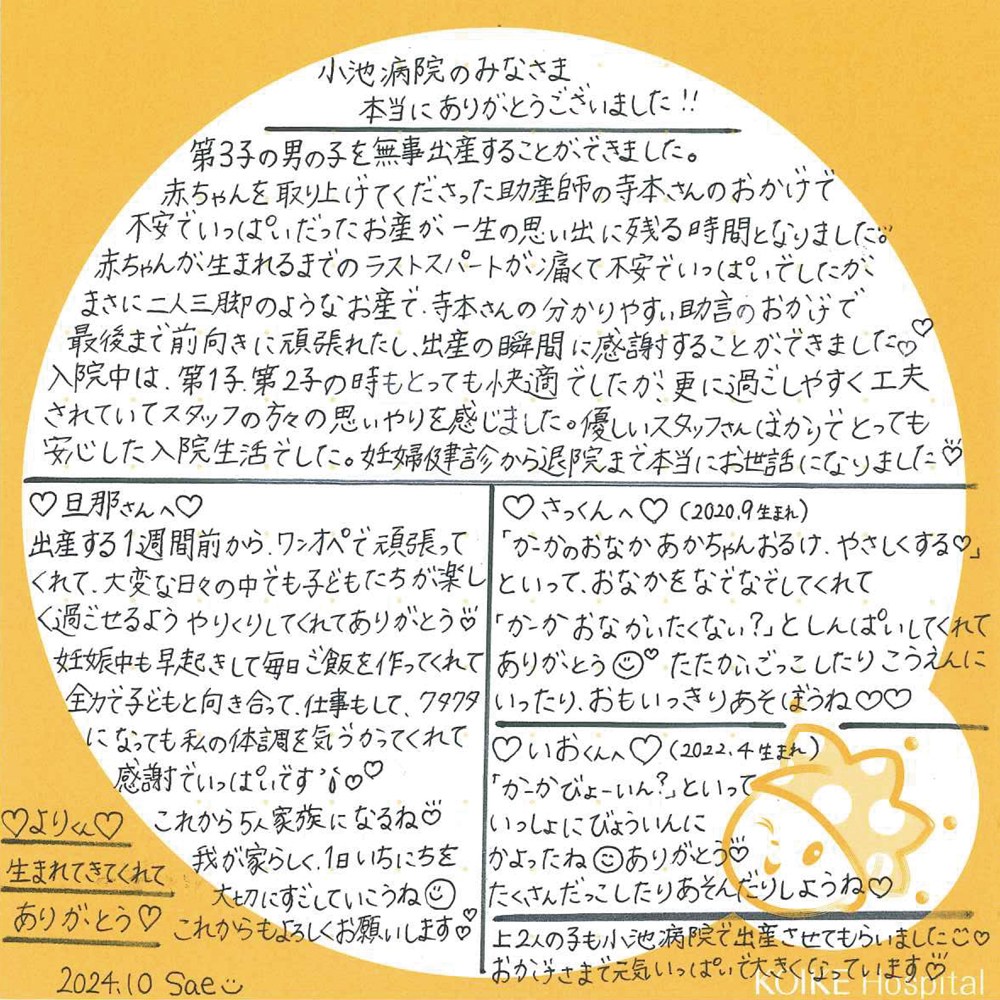 小池病院のみなさま
本当にありがとうございました!!
第3子の男の子を無事出産することができました。
赤ちゃんを取り上げてくださった助産師の寺本さんのおかげで
不安でいっぱいだったお産が、一生の思い出に残る時間となりました。
赤ちゃんが生まれるまでのラストスパートが痛くて不安でいっぱいでしたが、
まさに二人三脚のようなお産で、寺本さんの分かりやすい助言のおかげで
最後まで前向きに頑張れたし、出産の瞬間に感謝することができました♡♡
入院中は、第1子、第2子の時もとっても快適でしたが、更に過ごしやすく工夫
されていてスタッフの方々の思いやりを感じました。優しいスタッフさんばかりでとっても
安心した入院生活でした。妊婦健診から退院まで本当にお世話になりました♡
♡旦那さんへ♡
出産する1週間前から、ワンオペで頑張って
くれて、大変な日々の中でも子どもたちが楽し
く過ごせるようやりくりしてくれてありがとう♡
妊娠中も早起きして毎日ご飯を作ってくれて
全力で子どもと向き合って、仕事もして、クタクタ
になっても私の体調を気づかってくれて
感謝でいっぱいです♡♡
これから5人家族になるね♡
我が家らしく、1日いちにちを
大切にすごしていこうね☺
これからもよろしくお願いします♡
♡よりくん♡
生まれてきてくれて
ありがとう♡
2024.10 Sae
♡さっくんへ♡(2020.9生まれ)
「かーかのおなかあかちゃんおるけ、やさしくする♡」
といって、おなかをなでなでしてくれて
「かーかおなかいたくない?」としんぱいしてくれて
ありがとう☺♡ たたかいごっこしたりこうえんに
いったり、おもいっきりあそぼうね♡♡
♡いおくんへ♡(2022.4生まれ)
「かーかびょーいん?」といって
いっしょにびょういんに
かよったね☺ありがとう♡
たくさんだっこしたりあそんだりしようね♡
上2人の子も小池病院で出産させてもらいました♡
おかげさまで元気いっぱいで大きくなっています♡
KOIKE Hospital